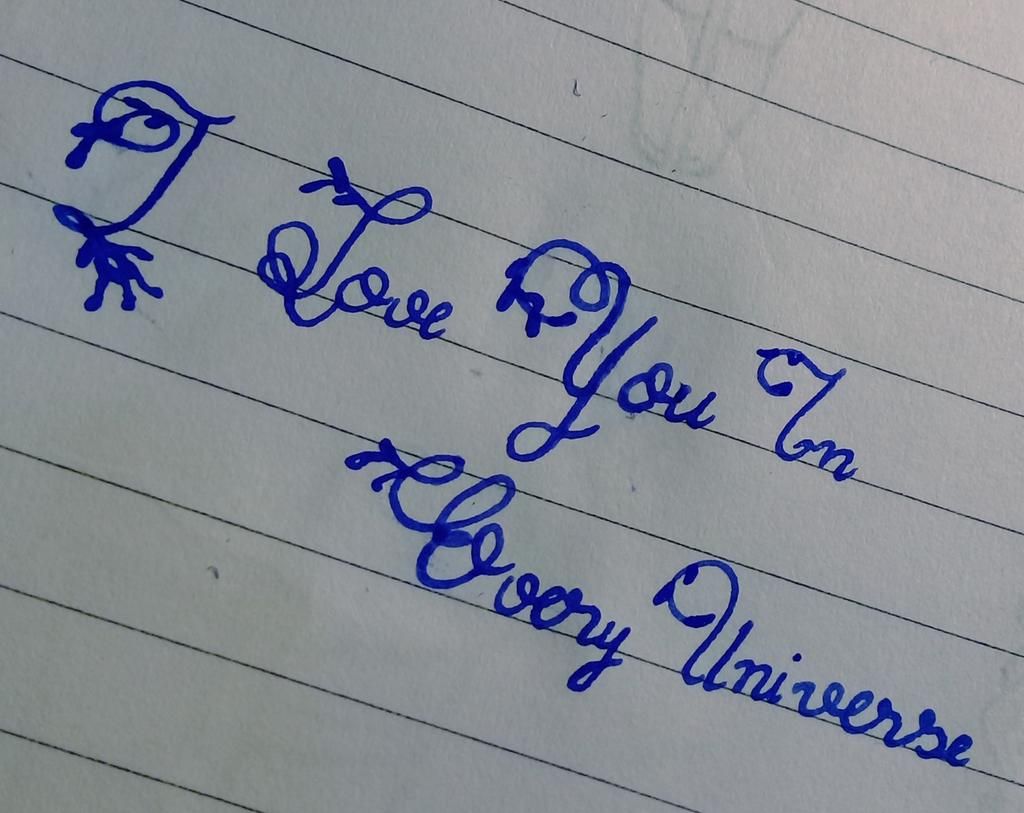 I Love You In
Every Universe